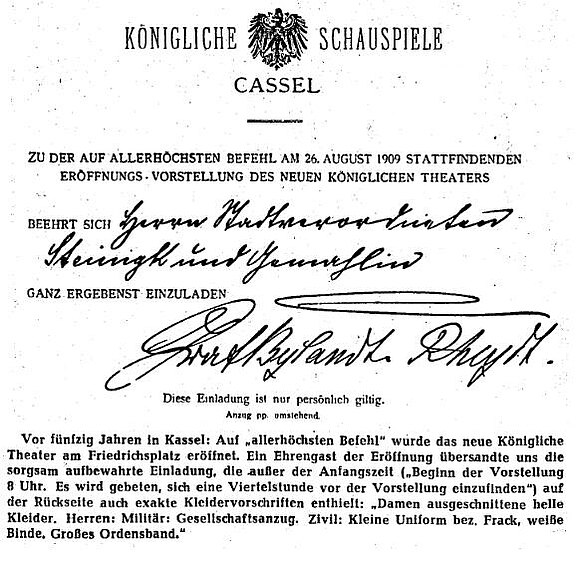 KÖNIGLICHE SCHAUSPIELE
CASSEL
ZU DER AUF ALLERHÖCHSTEN BEFEHL AM 26. AUGUST 1909 STATTFINDENDEN
ERÖFFNUNGS-VORSTELLUNG DES NEUEN KÖNIGLICHEN THEATERS
BEEHRT SICH Herrn Stadtverordneten
Steinigk und Gemahlin
GANZ ERGEBENST EINZULADEN
Graf Bylandt. Rheydt.
Diese Einladung ist nur persönlich giltig.
Anzug pp. umstehend.
Vor fünfzig Jahren in Kassel: Auf „allerhöchsten Befehl“ wurde das neue Königliche
Theater am Friedrichsplatz eröffnet. Ein Ehrengast der Eröffnung übersandte uns die
sorgsam aufbewahrte Einladung, die außer der Anfangszeit („Beginn der Vorstellung
8 Uhr. Es wird gebeten, sich eine Viertelstunde vor der Vorstellung einzufinden“) auf
der Rückseite auch exakte Kleidervorschriften enthielt: „Damen ausgeschnittene helle
Kleider. Herren: Militär: Gesellschaftsanzug. Zivil: Kleine Uniform bez. Frack, weiße
Binde. Großes Ordensband.“